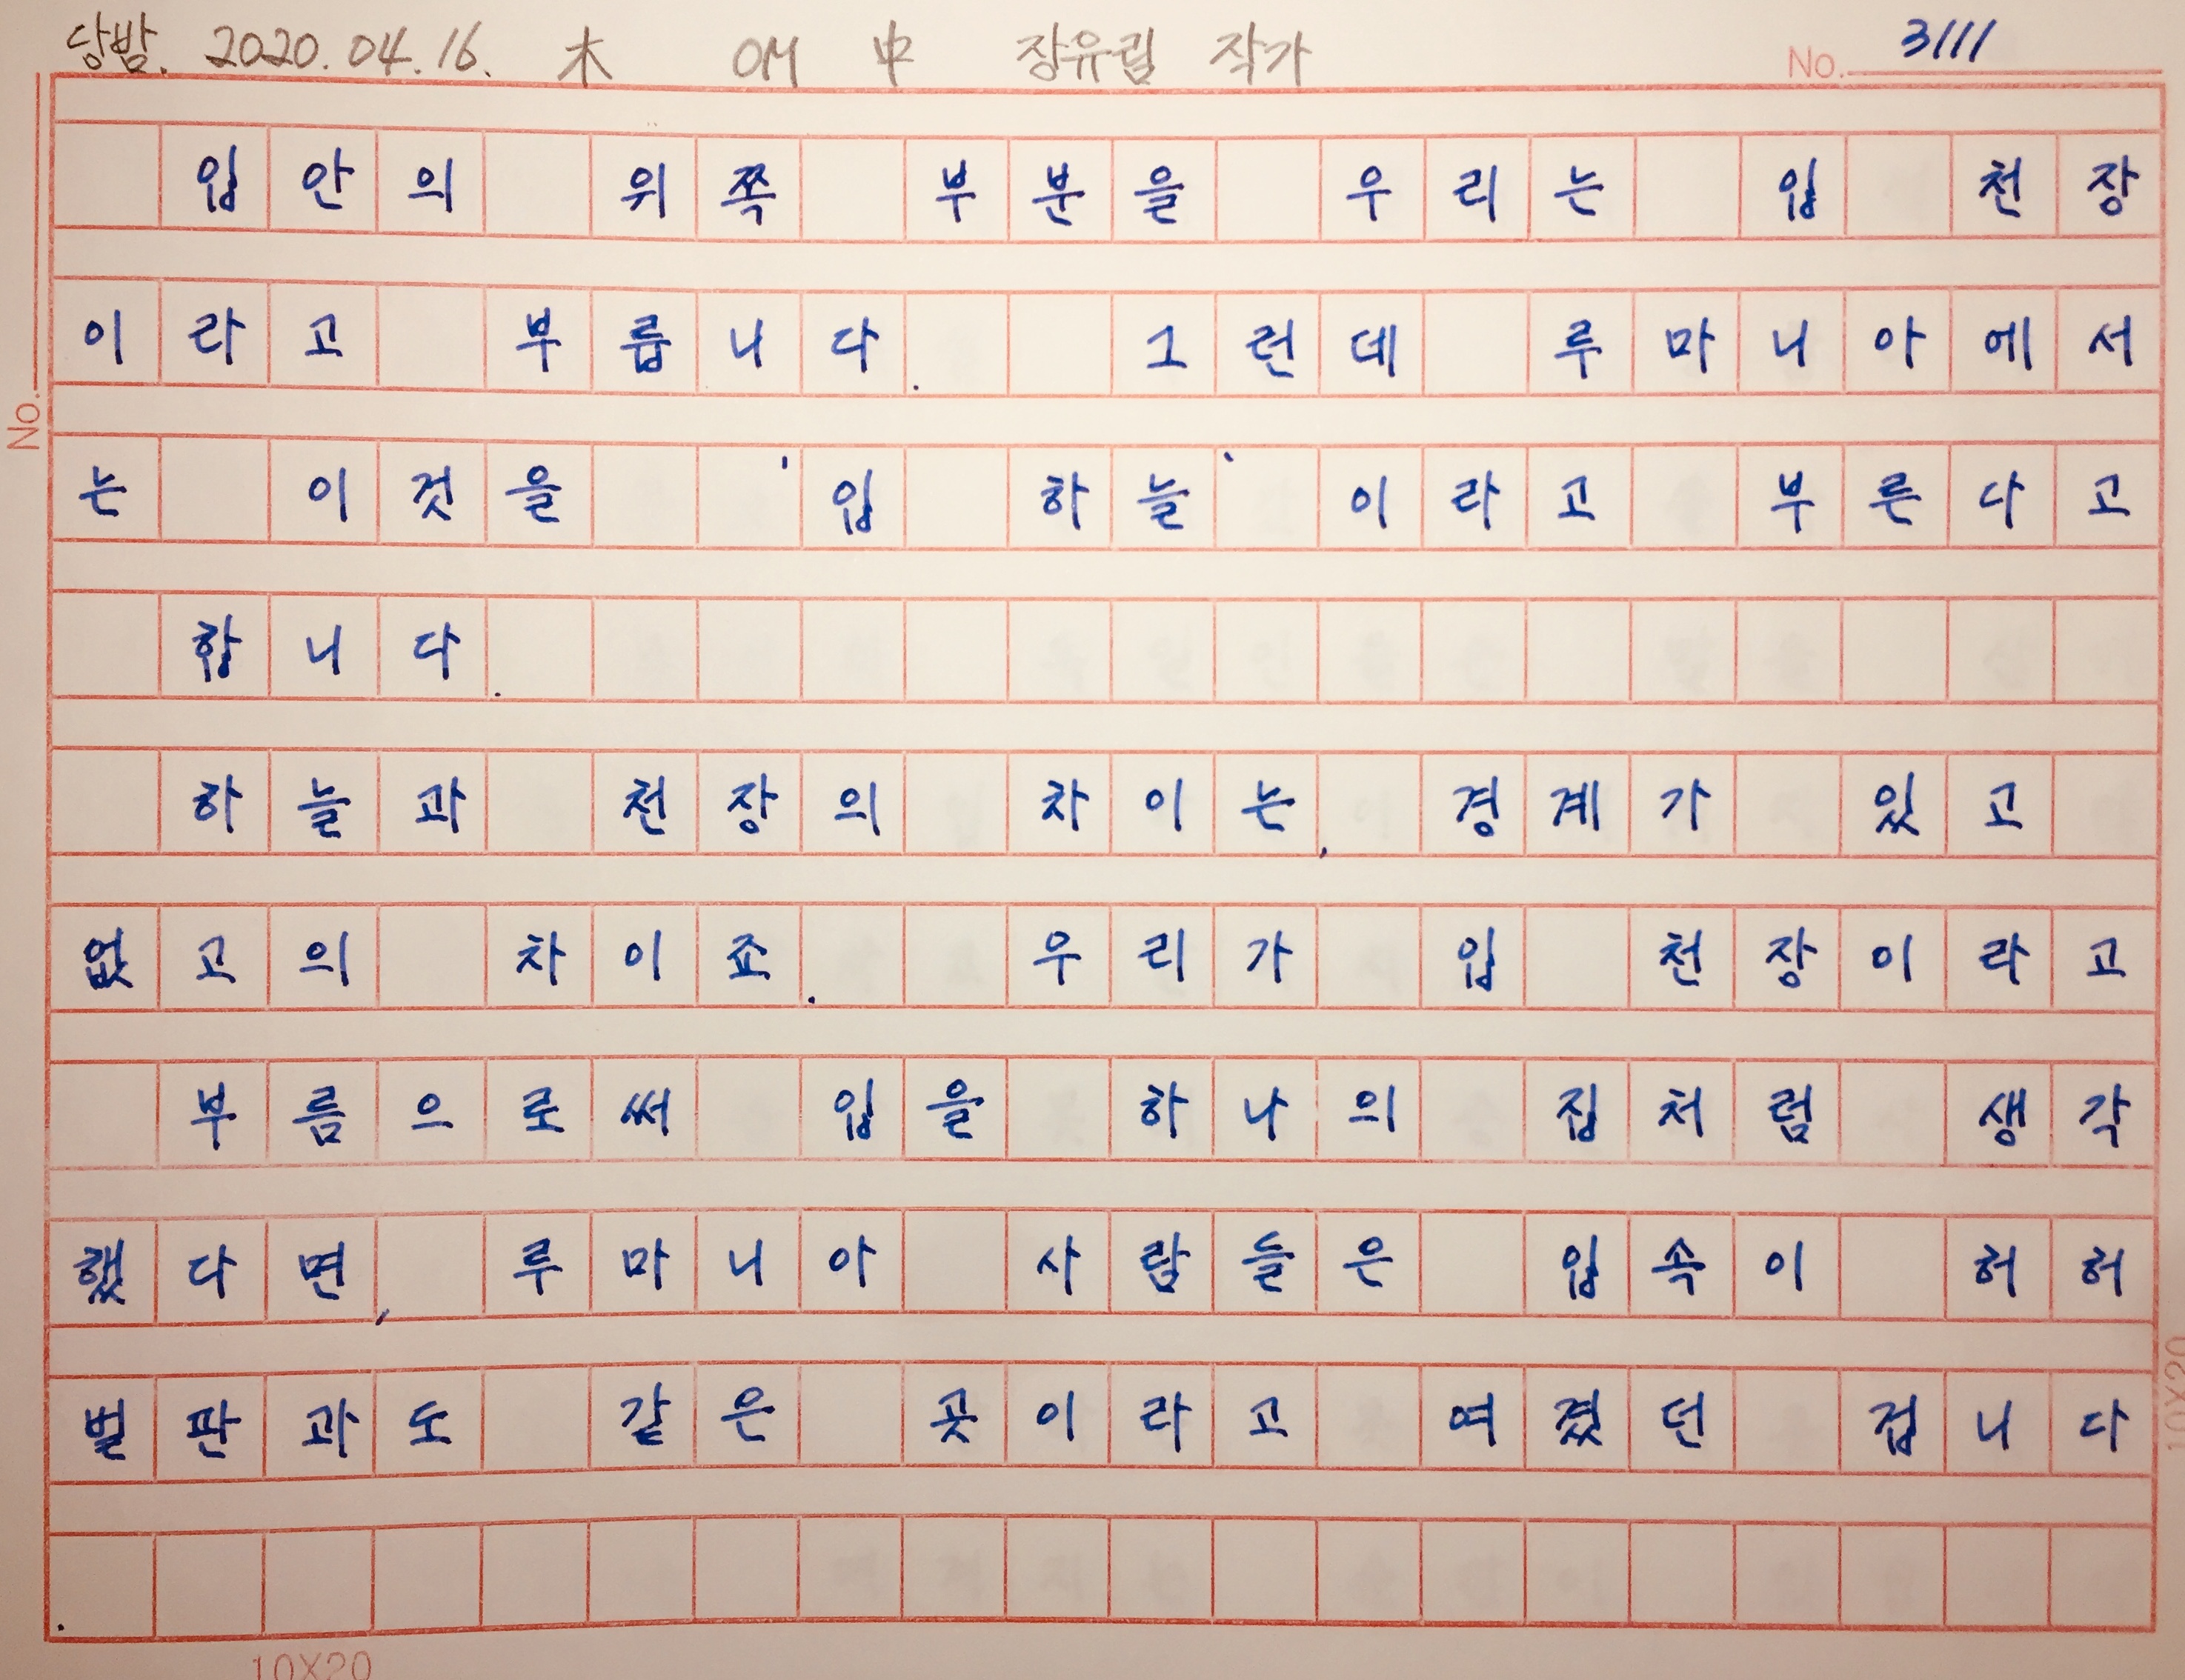 당밤. 2020.04.16. 木 OM 中 장유림 작가 No. 3111
입안의 위쪽 부분을 우리는 입 천장
이라고 부릅니다. 그런데 루마니아에서
는 이것을 '입 하늘'이라고 부른다고
합니다.
하늘과 천장의 차이는, 경계가 있고
없고의 차이죠. 우리가 입 천장이라고
부름으로써 입을 하나의 집처럼 생각
했다면, 루마니아 사람들은 입속이 허허
벌판과도 같은 곳이라고 여겼던 겁니다
.
No.
10X20
10X20